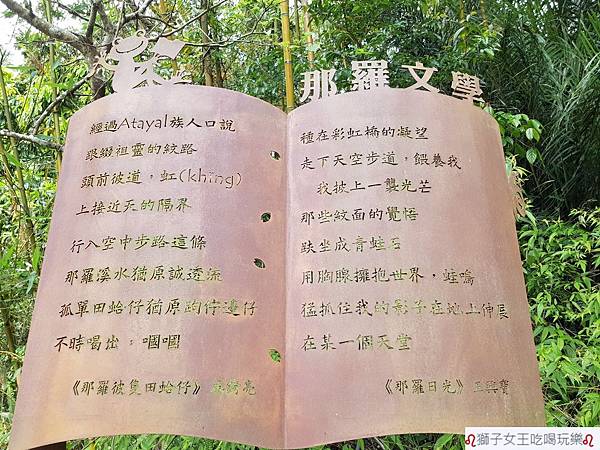 那羅文學
經過Atayal族人口說
跟綴祖靈的紋路
頭前彼道，虹(khīng)
上接近天的隔界
行入空中步路這條
那羅溪水猶原誠透流
孤單田蛤仔猶原跍佇邊仔
不時喝出：嘓嘓
《那羅彼隻田蛤仔》
種在彩虹橋的凝望
走下天空步道，餵養我
我披上一襲光芒
那些紋面的覺悟
趺坐成青蛙石
用胸腺擁抱世界，蛙鳴
猛抓住我的影子在地上伸展
在某一個天堂
《那羅日光》王興寶
獅子女王吃喝玩樂